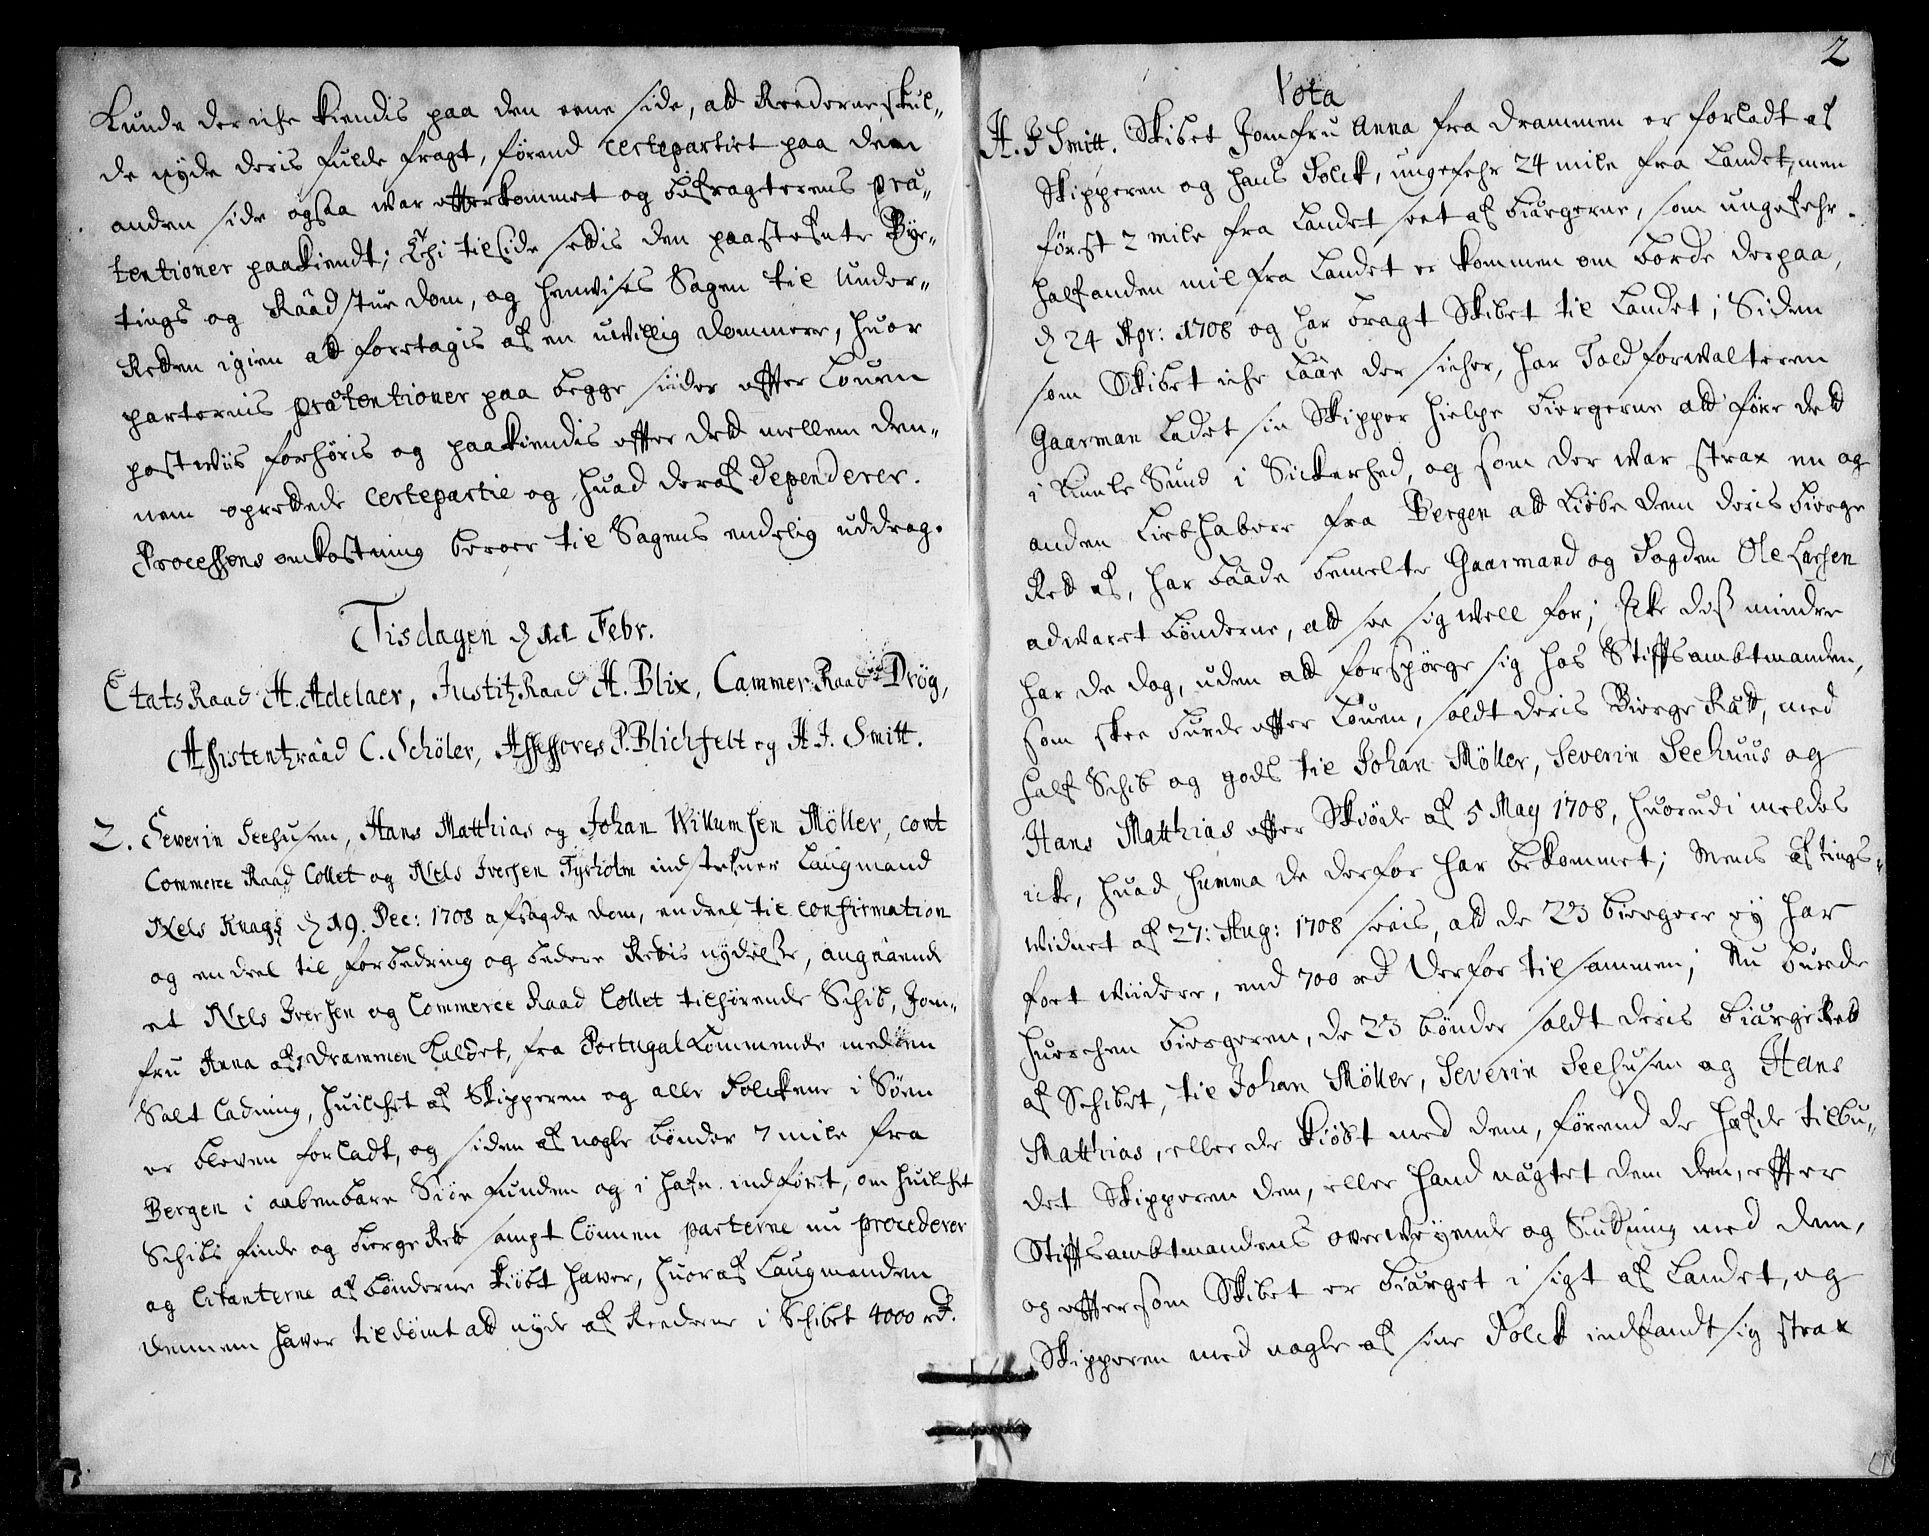 Kunde der icke kiendis paa den eene side, att Rederne skul-
de nyde deris fulde fragt, førend Certepartiet paa den
anden side ogsaa war efterkommet og befragterens præ-
tentioner paakiendt; Thi til side settis den paastefnte Bye-
tings og Raadstue dom, og henwises Sagen til Under-
Retten igien att foretagis af en uwillig dommere, huor
parternis prætentioner paa begge siider effter Louen
postwiis forhøris og paakiendis effter dett mellem den-
nem oprettede Certepartie og huad deraf dependerer.
Processens omkostning beroer til Sagens endelig uddrag.
Tisdagen d 11 Febr.
EtatsRaad H. Adelaer, JustitzRaad H. Blix, CammerRaad Drøg,
Assistentzraad C. Schöler, Assessores P. Blichfelt og H. J. Smitt.
2. Severin Seehusen, Hans Matthias og Johan Willumsen Möller, cont
Commerce Raad Collet og Niels Iversen Tyrholm indstefner Laugmand
Niels Knags d 19. Dec: 1708 afsagde dom, en deel til confirmation
og en deel til forbedring og bedere Rettis nydelse, angaaende
et Niels Iversen og Commerce Raad Collet tilhørende Schib, Jom-
fru Anna af Drammen kaldet, fra Portugal kommende med en
Salt ladning, huilchet af Skipperen og alle Folckene i Søen
er bleven forladt, og siden af nogle bønder 7 mile fra
Bergen i aabenbare Siøe funden og i hafn indført, om huilchet
Schibs finde og bierge Rett sampt lønnen parterne nu procederer
og Citanterne af bønderne kiøbt hawer, huoraf Laugmanden
dennem hawer tildømt att nyde af Rederne i Schibet 4000 rd.
2
Vota
H. J Smitt. Skibet Jomfru Anna fra Drammen er forladt af
Skipperen og hans Folck, ungefehr 24 mile fra Landet, men
først 2 mile fra Landet seet af biergerne, som ungefehr
halfanden mil fra Landet er kommen om borde derpaa,
d 24 Apr: 1708 og har bragt Skibet til Landet; Siden
som Skibet icke laae der sicher, har Toldforwalteren
Gaarman ladet sin Skipper hielpe biergerne att føre dett
i Sund i Sickerhed, og som der war strax en og
anden Liebhabere fra Bergen att kiøbe dem deris bierge
Rett af, har baade bemelte Gaarmand og Fogden Ole Larsen
adwaret bønderne, att see sig well for; Icke deß mindre
har de dog, uden att forspørge sig hos Stiffsambtmanden,
som skee burde effter Louen, soldt deris Bierge Rett, med
half Schib og gods til Johan Möller, Severin Seehuus og
Hans Matthias effter Skiøde af 5 May 1708, huorudi meldes
icke, huad summa de derfor har bekommet; Mens af tings-
widnet af 27: Aug: 1708 sees, att de 23 biergere ey har
faaet wiidere, end 700 rd derfor tilsammen; Nu burde
huerchen biergeren, de 23 bønder soldt deris bierge Rett
af Schibet, til Johan Möller, Severin Seehusen og Hans
Matthias, eller de kiøbt med dem, førend de hafde tilbu-
det Skipperen den, eller hand nægtet dem den, effter
Stiffsambtmandens overweyende og Slutning med dem,
og effter som Skibet er bierget i sigt af Landet, og
Skipperen med nogle af sine Folck indfandt sig strax